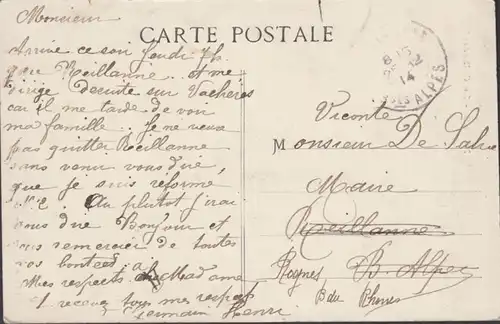 CARTE POSTALE
Monsieur
Arrivé ce soir Jeudi 7h
gare Reillanne et me
dirige Desuite sur Vachères
car il me tarde de voir
ma famille. Je ne veux
pas quitter Reillanne
sans venir vous dire
que je suis reformé
N° 2. Au plutot j'irai
vous dire Bonjour et
vous remercier de toutes
vos bontées
Mes respects à Madame
et recevez tous mes respects
Germain Henri
8 15
12
14
ALPES
Vicomte
Monsieur De Salve
Maire
Reillanne
Rognes B. Alpes
B du Rhone